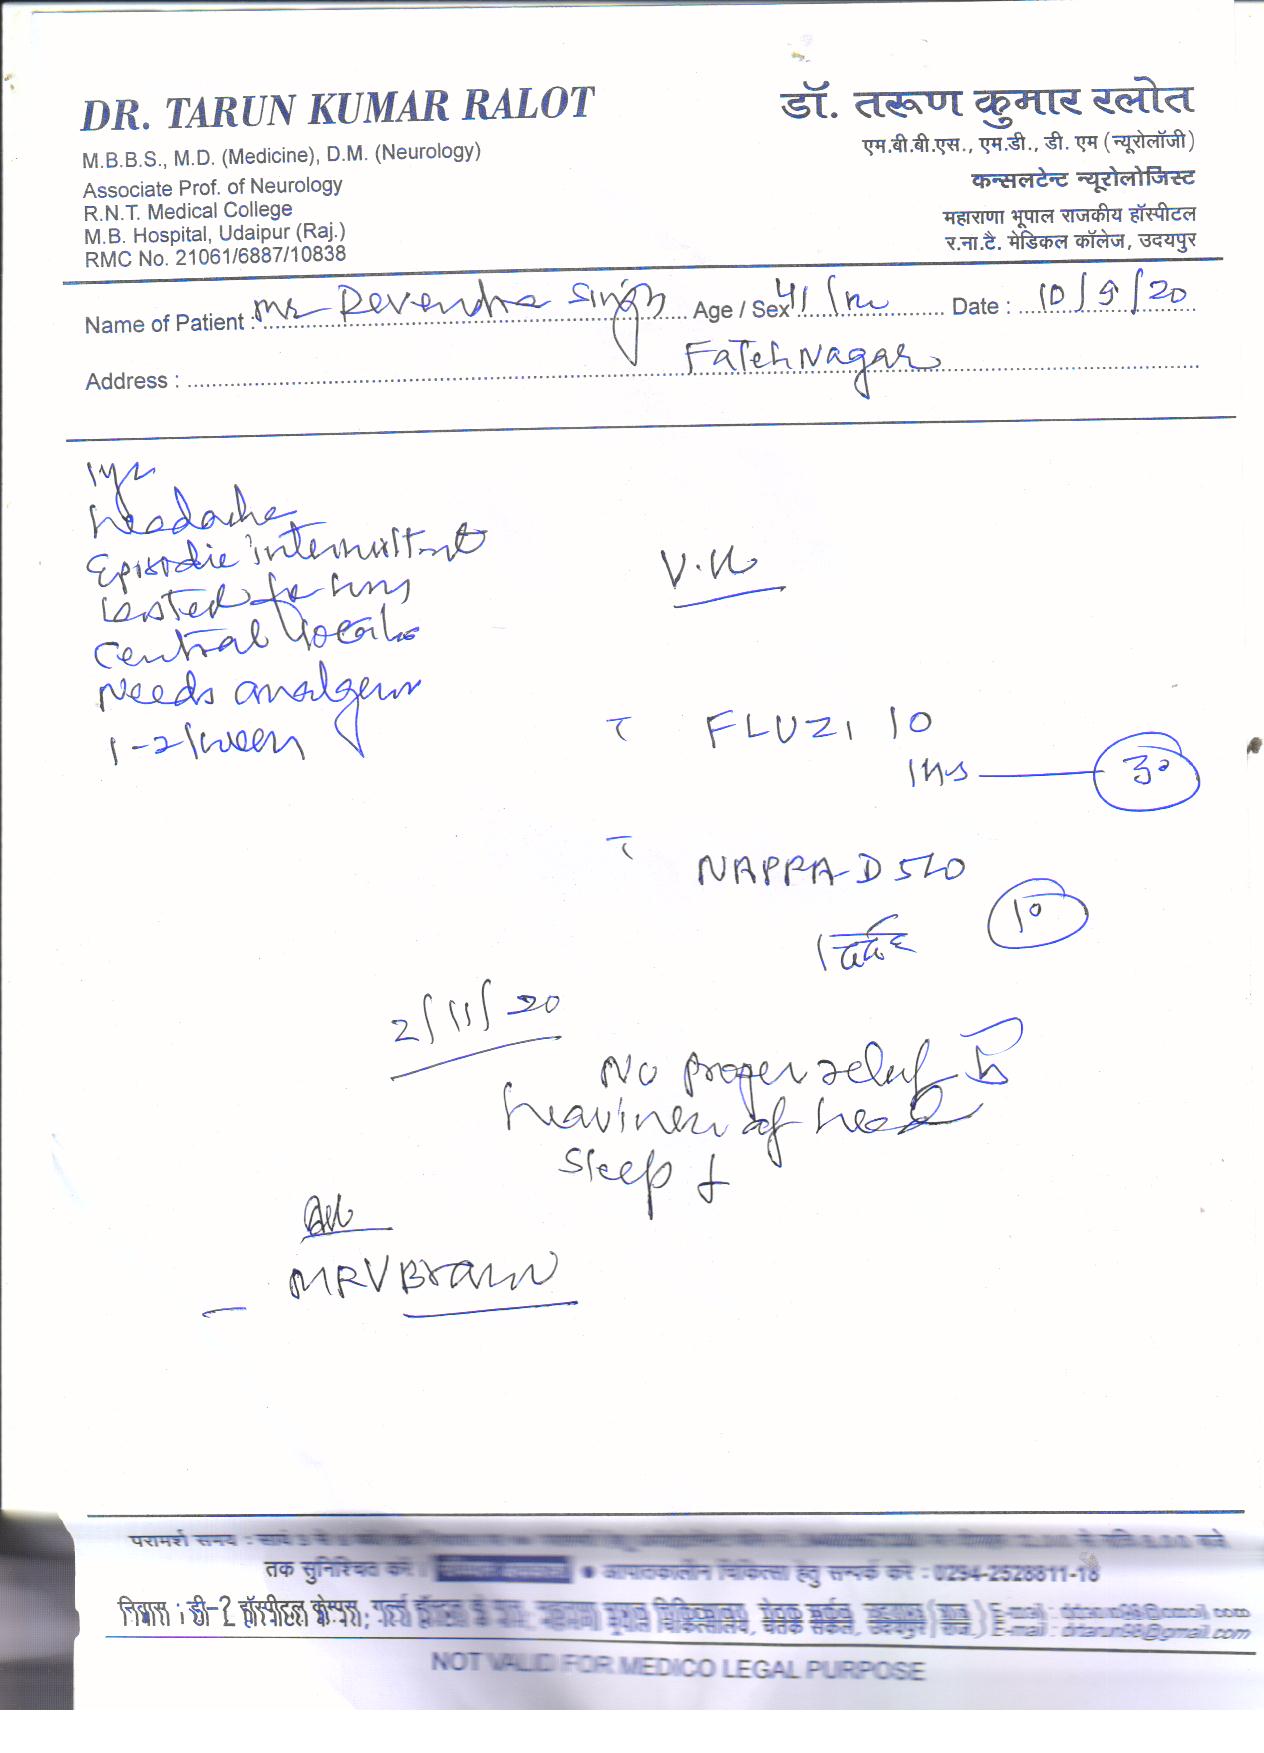 DR. TARUN KUMAR RALOT
M.B.B.S., M.D. (Medicine), D.M. (Neurology)
Associate Prof. of Neurology
R.N.T. Medical College
M.B. Hospital, Udaipur (Raj.)
RMC No. 21061/6887/10838
डॉ. तरूण कुमार रलोत
एम.बी.बी.एस., एम.डी., डी. एम (न्यूरोलॉजी)
कन्सलटेन्ट न्यूरोलोजिस्ट
महाराणा भूपाल राजकीय हॉस्पीटल
र.ना.टै. मेडिकल कॉलेज, उदयपुर
Name of Patient : Mr Devendra Singh Age / Sex : 41 / m Date : 10/9/20
Address : Fateh Nagar
1yr
headache
Episodic intermittent
Lasted for hrs
Central
Needs
1-2/week
FLUZI 10
1 hs 30
NAPRA-D 500
10
2/11/20
No proper relief
heaviness of head
Sleep
MRV Brain
परामर्श समय :
तक सुनिश्चित करें। आपातकालीन चिकित्सा हेतु सम्पर्क करे : 0294-2528811-18
निवास : डी-2 हॉस्पीटल केम्पस, E-mail : drtarun98@gmail.com
E-mail : drtarun98@gmail.com
NOT VALID FOR MEDICO LEGAL PURPOSE